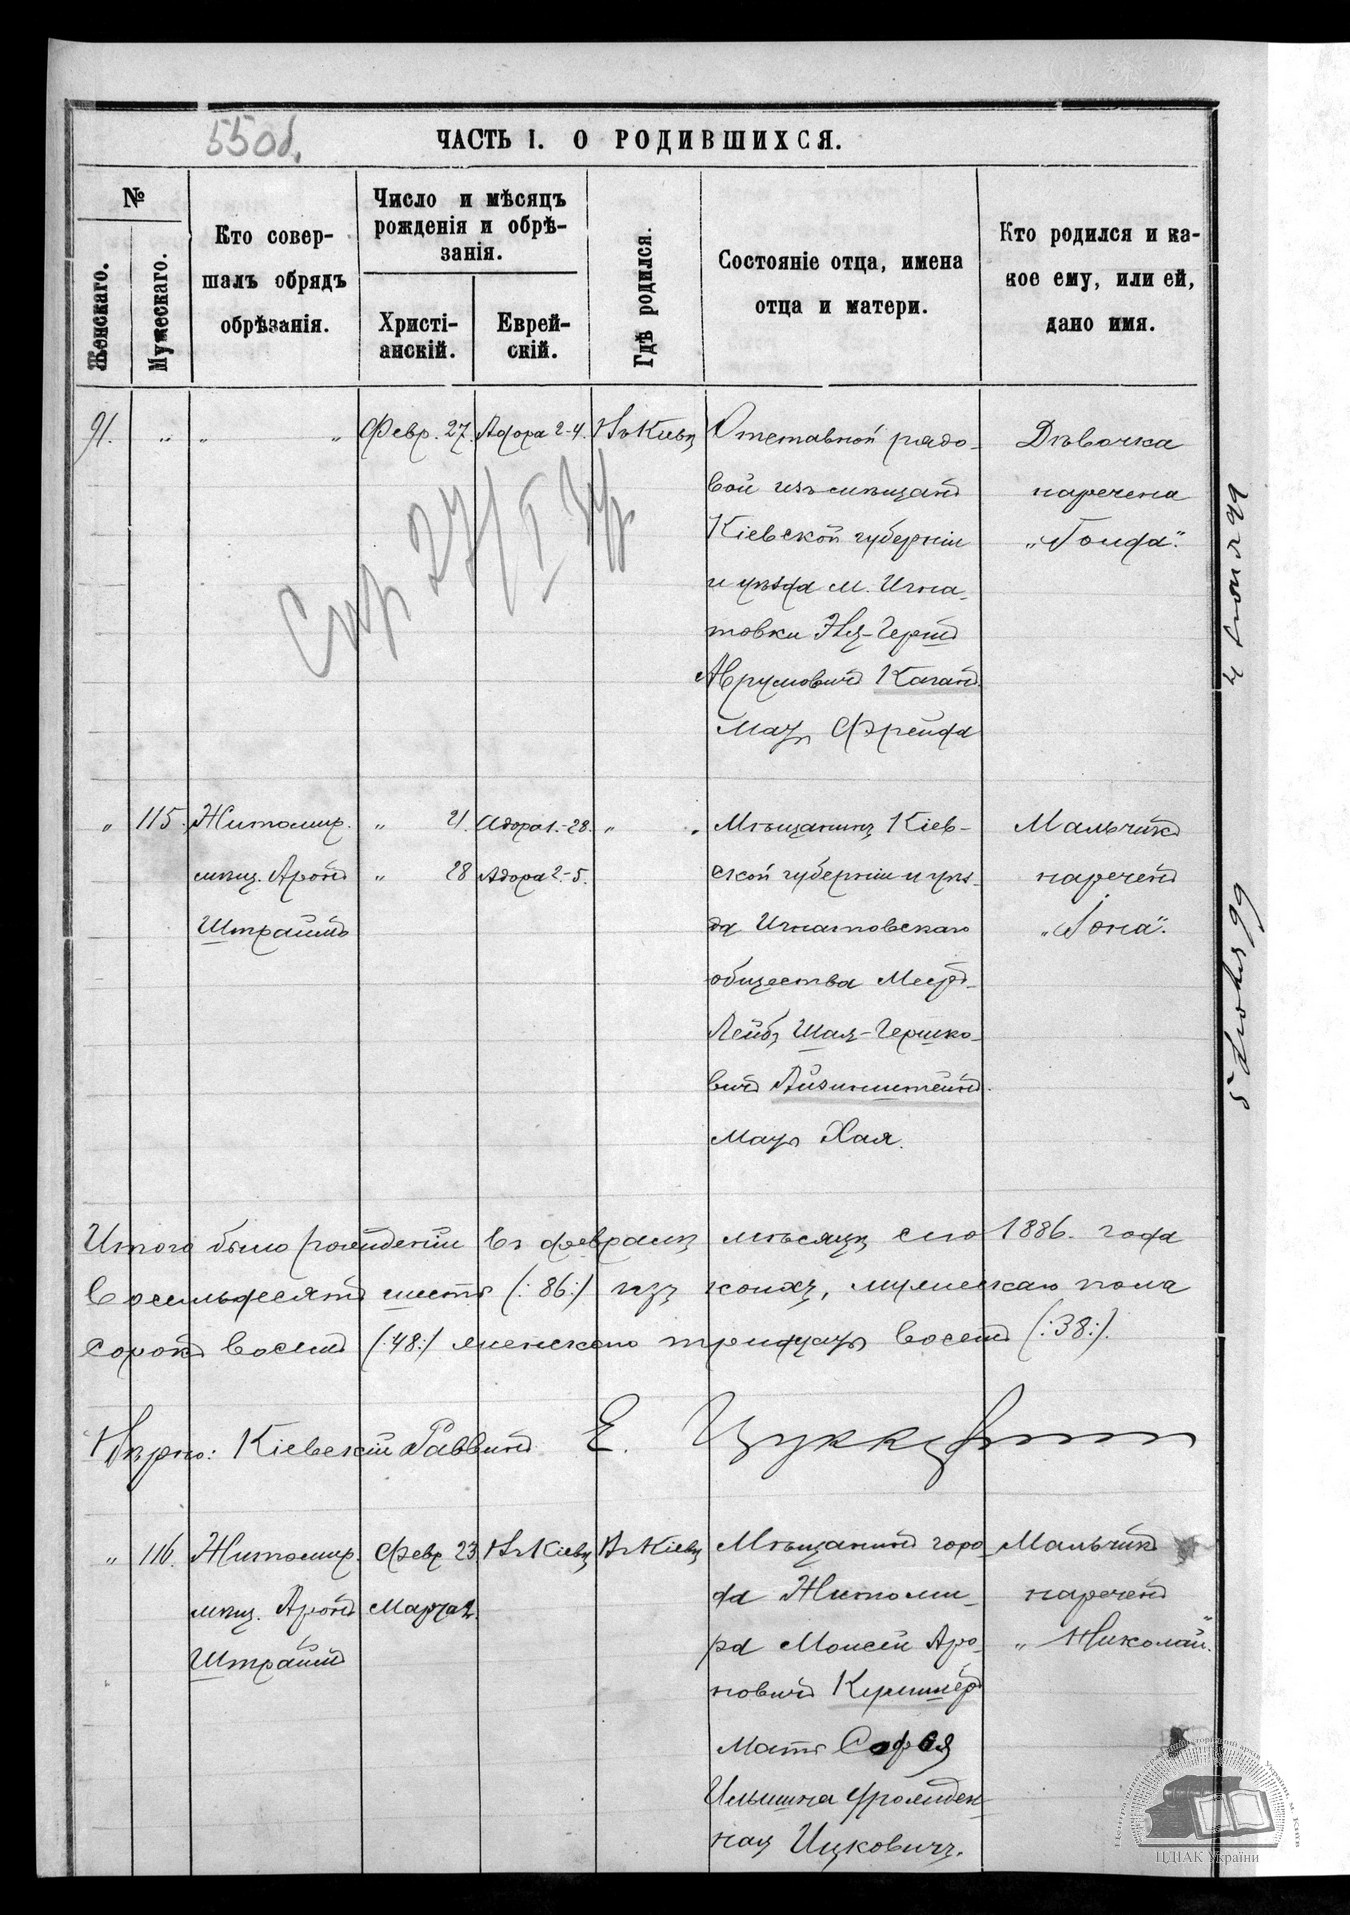 550б.
ЧАСТЬ I. О РОДИВШИХСЯ.
№
Женскаго.
Мужескаго.
Кто совер-
шалъ обрядъ
обрѣзанія.
Число и мѣсяцъ
рожденія и обрѣ-
занія.
Христі-
анскій.
Еврей-
скій.
Гдѣ родился.
Состояніе отца, имена
отца и матери.
Кто родился и ка-
кое ему, или ей,
дано имя.
91. „ „ „ Февр. 27. Адора 2-4. Въ Кіевѣ
Отставной рядо-
вой изъ мѣщанъ
Кіевской губерніи
и уѣзда м. Игна-
товки
Аврумовичъ Каганъ.
Мать Фрейда
Дѣвочка
наречена
4 Іюня 99
„ 115. Житомир.
мѣщ. Аронъ
Штраймъ
„ 21. Адора 1.-28. „ „
„ 28 Адора 2.-5.
Мѣщанинъ Кіев-
ской губерніи и уѣз-
да Игнатовскаго
общества
Лейбъ Шая-Гершко-
вичъ Айзинштейнъ.
Мать Хая.
Мальчикъ
нареченъ
„Іона“.
99
Итого было рожденій въ февралѣ мѣсяцѣ сего 1886. года
восемьдесятъ шесть (:86:) изъ коихъ, мужескаго пола
сорокъ восемь (:48:) женскаго тридцать восемь (:38:).
Вѣрно: Кіевскій Раввинъ Е. Цуккерманъ
„ 116. Житомир.
мѣщ. Аронъ
Штраймъ
Февр. 23 Въ Кіевѣ Въ Кіевѣ
Марта 2.
Мѣщанинъ горо-
да Житоми-
ра Моисей Аро-
новичъ Куршнеръ
Мать Софья
Ильишна урожден-
ная Ицковичъ.
Мальчикъ
нареченъ
„Николай“.
ЦДІАК України